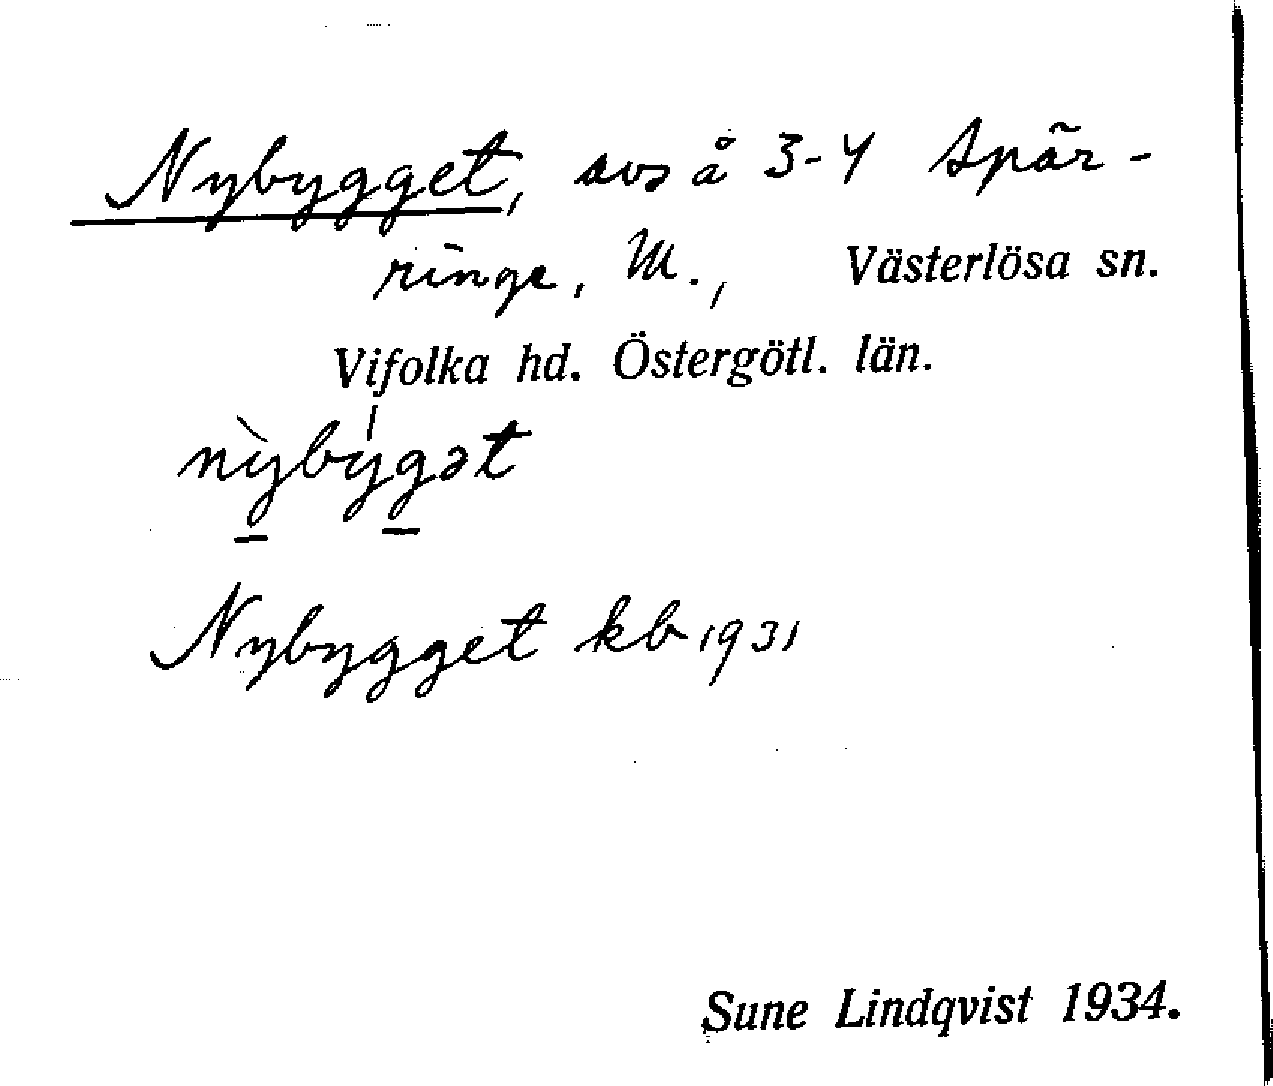 Nybygget, avs å 3-4 Spär-
ringe, M., Västerlösa sn.
Vifolka hd. Östergötl. län.
nỳbýgət
Nybygget kb 1931
Sune Lindqvist 1934.